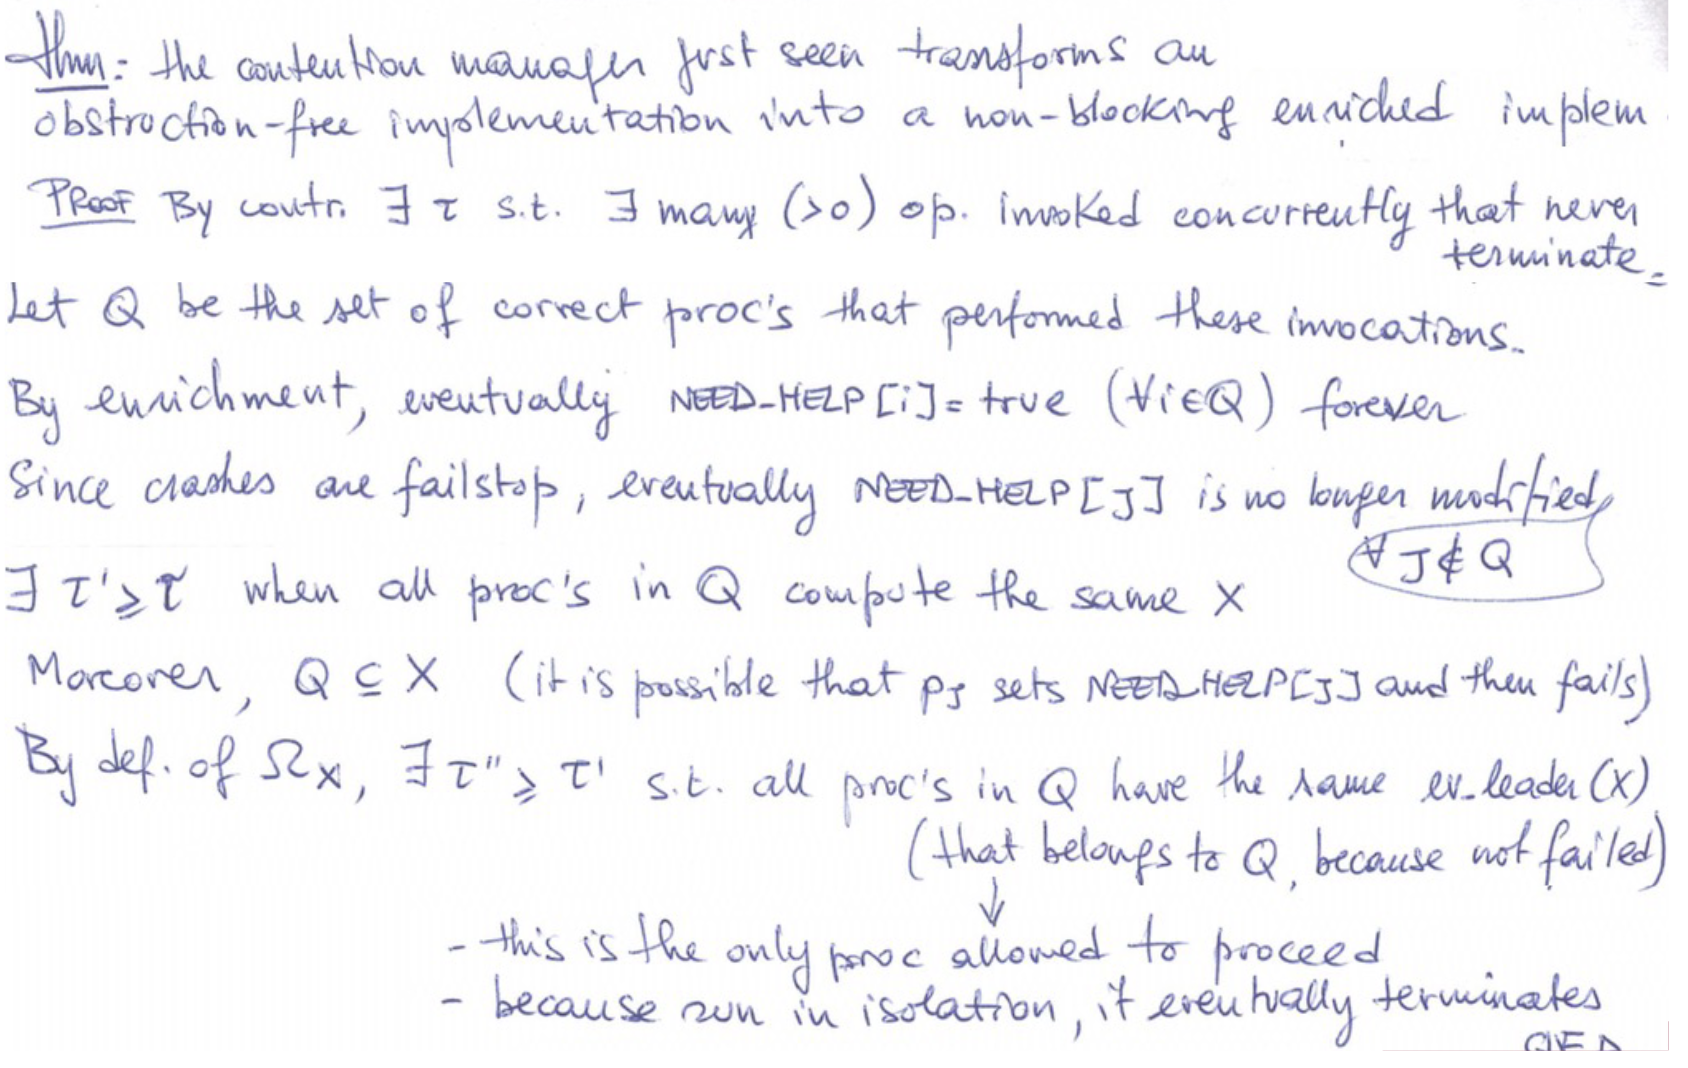 Thm: the contention manager just seen transforms an
obstruction-free implementation into a non-blocking enriched implem.
PROOF By contr. ∃ τ s.t. ∃ many (>0) op. invoked concurrently that never
terminate.
Let Q be the set of correct proc's that performed these invocations.
By enrichment, eventually NEED-HELP[i] = true (∀i∈Q) forever
Since crashes are failstop, eventually NEED-HELP[J] is no longer modified,
∀ J ∉ Q
∃ τ' ≥ τ when all proc's in Q compute the same X
Moreover, Q ⊆ X (it is possible that pJ sets NEED-HELP[J] and then fails)
By def. of Ωx, ∃ τ'' ≥ τ' s.t. all proc's in Q have the same ev-leader(X)
(that belongs to Q, because not failed)
↓
- this is the only proc allowed to proceed
- because run in isolation, it eventually terminates
QED